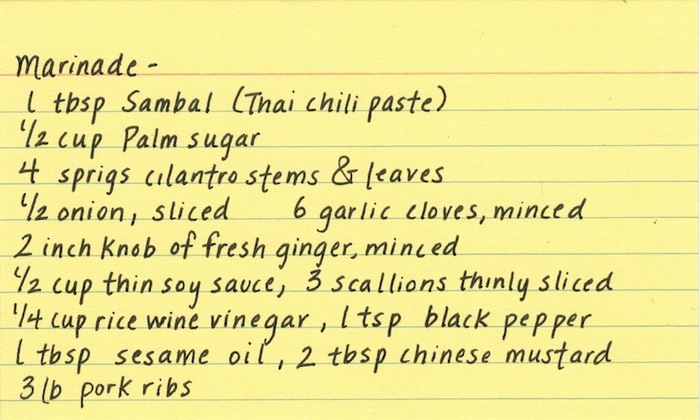 Marinade -
1 tbsp Sambal (Thai chili paste)
1/2 cup Palm sugar
4 sprigs cilantro stems & leaves
1/2 onion, sliced 6 garlic cloves, minced
2 inch knob of fresh ginger, minced
1/2 cup thin soy sauce, 3 scallions thinly sliced
1/4 cup rice wine vinegar, 1 tsp black pepper
1 tbsp sesame oil, 2 tbsp chinese mustard
3 lb pork ribs